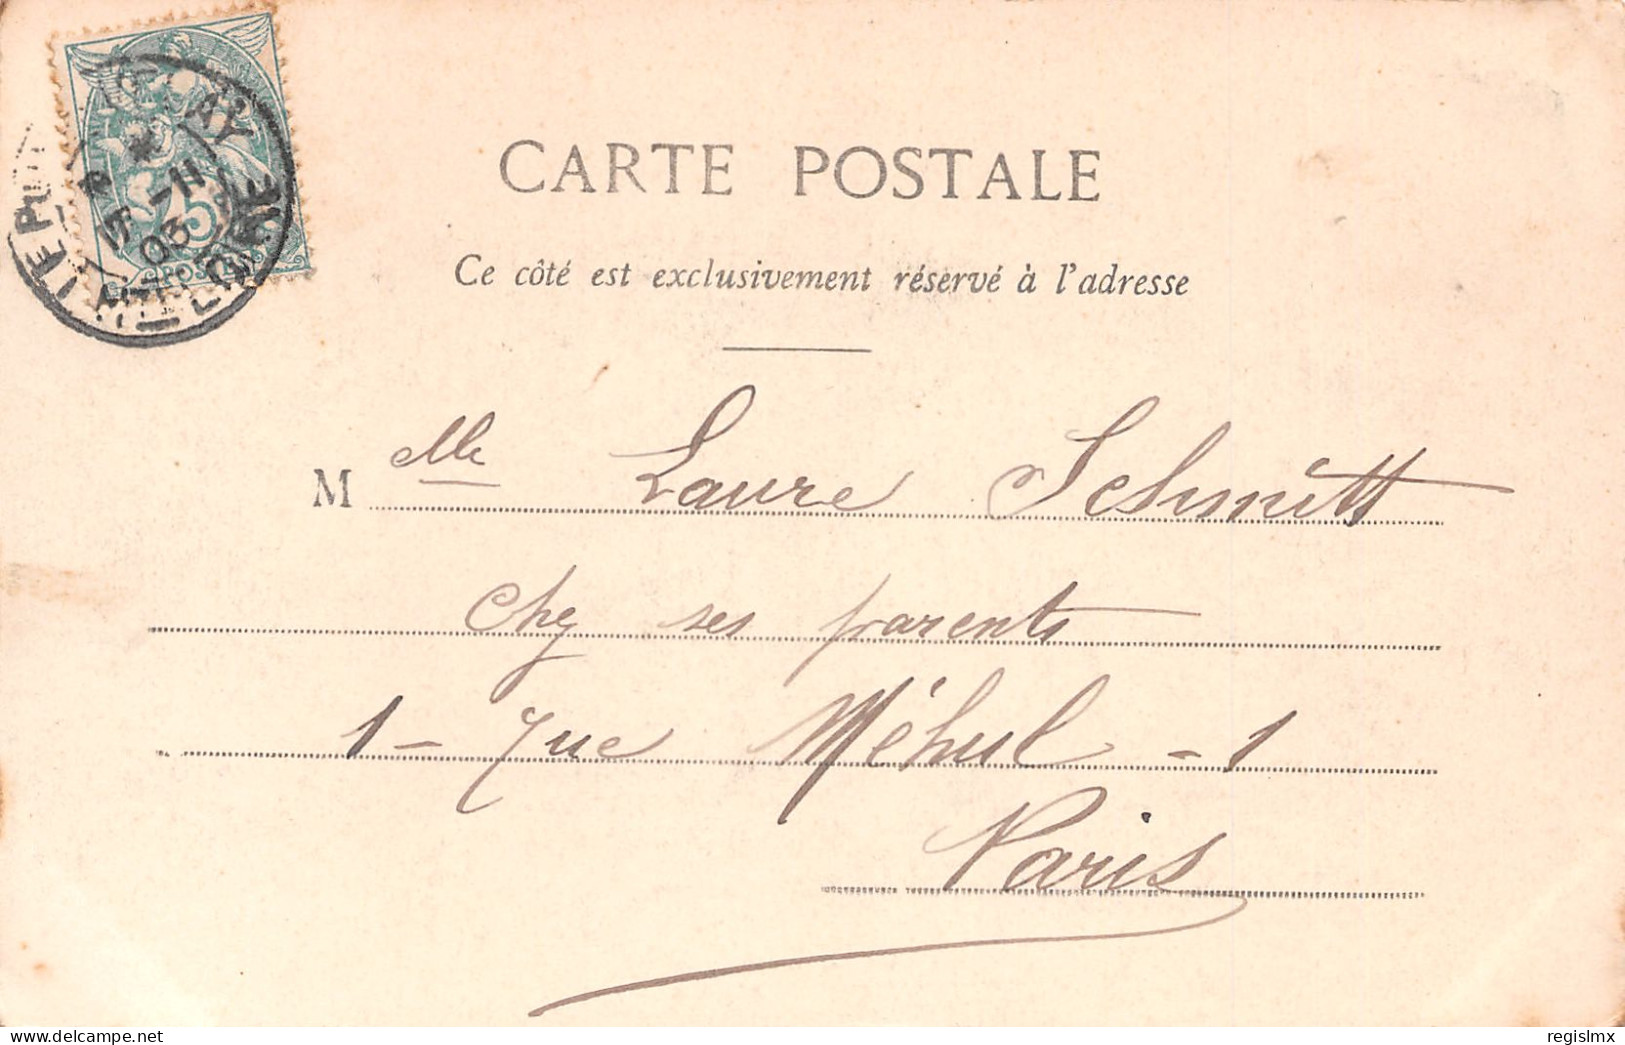 CARTE POSTALE
Ce côté est exclusivement réservé à l'adresse
M elle Laure Schmitt
chez ses parents
1 - rue Méhul - 1
Paris
5
POSTES
15 - 11
03
HTE LOIRE
LE PUY
delcampe.net
regislmx